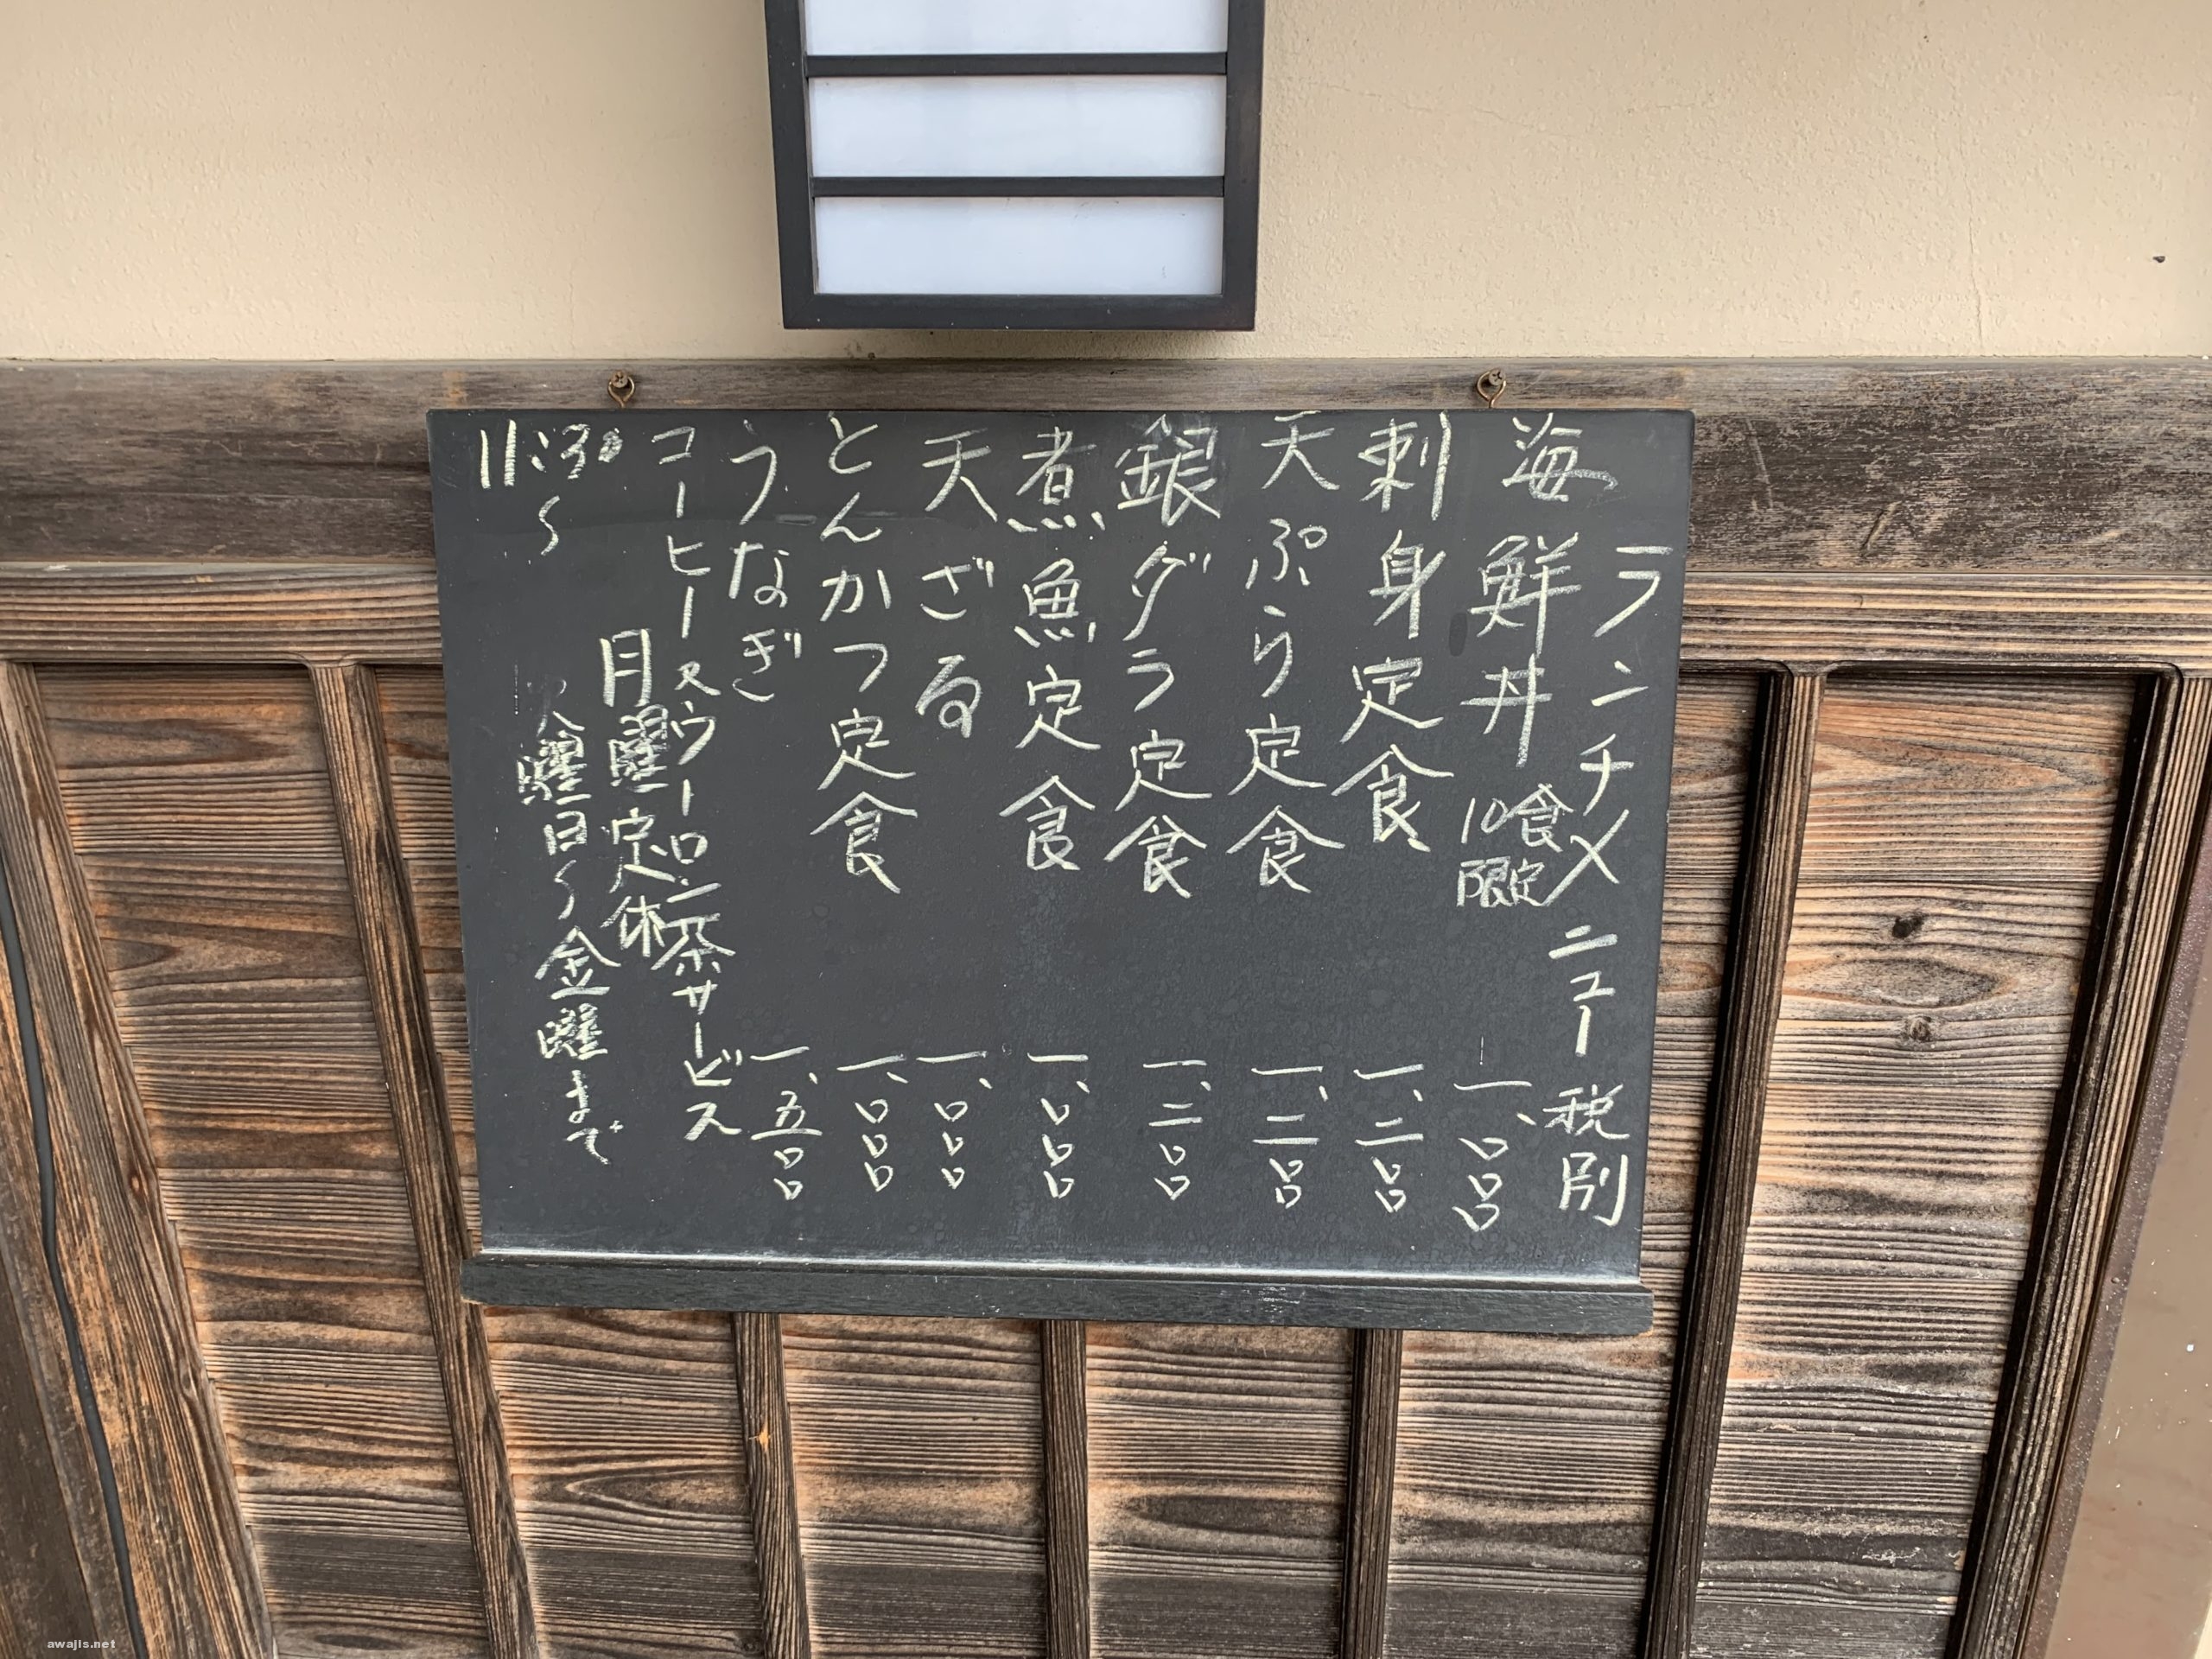 ランチメニュー 税別
海鮮丼 10食限定 一、〇〇〇
刺身定食 一、二〇〇
天ぷら定食 一、二〇〇
銀ダラ定食 一、二〇〇
煮魚定食 一、〇〇〇
天ざる 一、〇〇〇
とんかつ定食 一、〇〇〇
うなぎ 一、五〇〇
コーヒー又ウーロン茶サービス
月曜定休
11:30〜
火曜日〜金曜まで
awajis.net